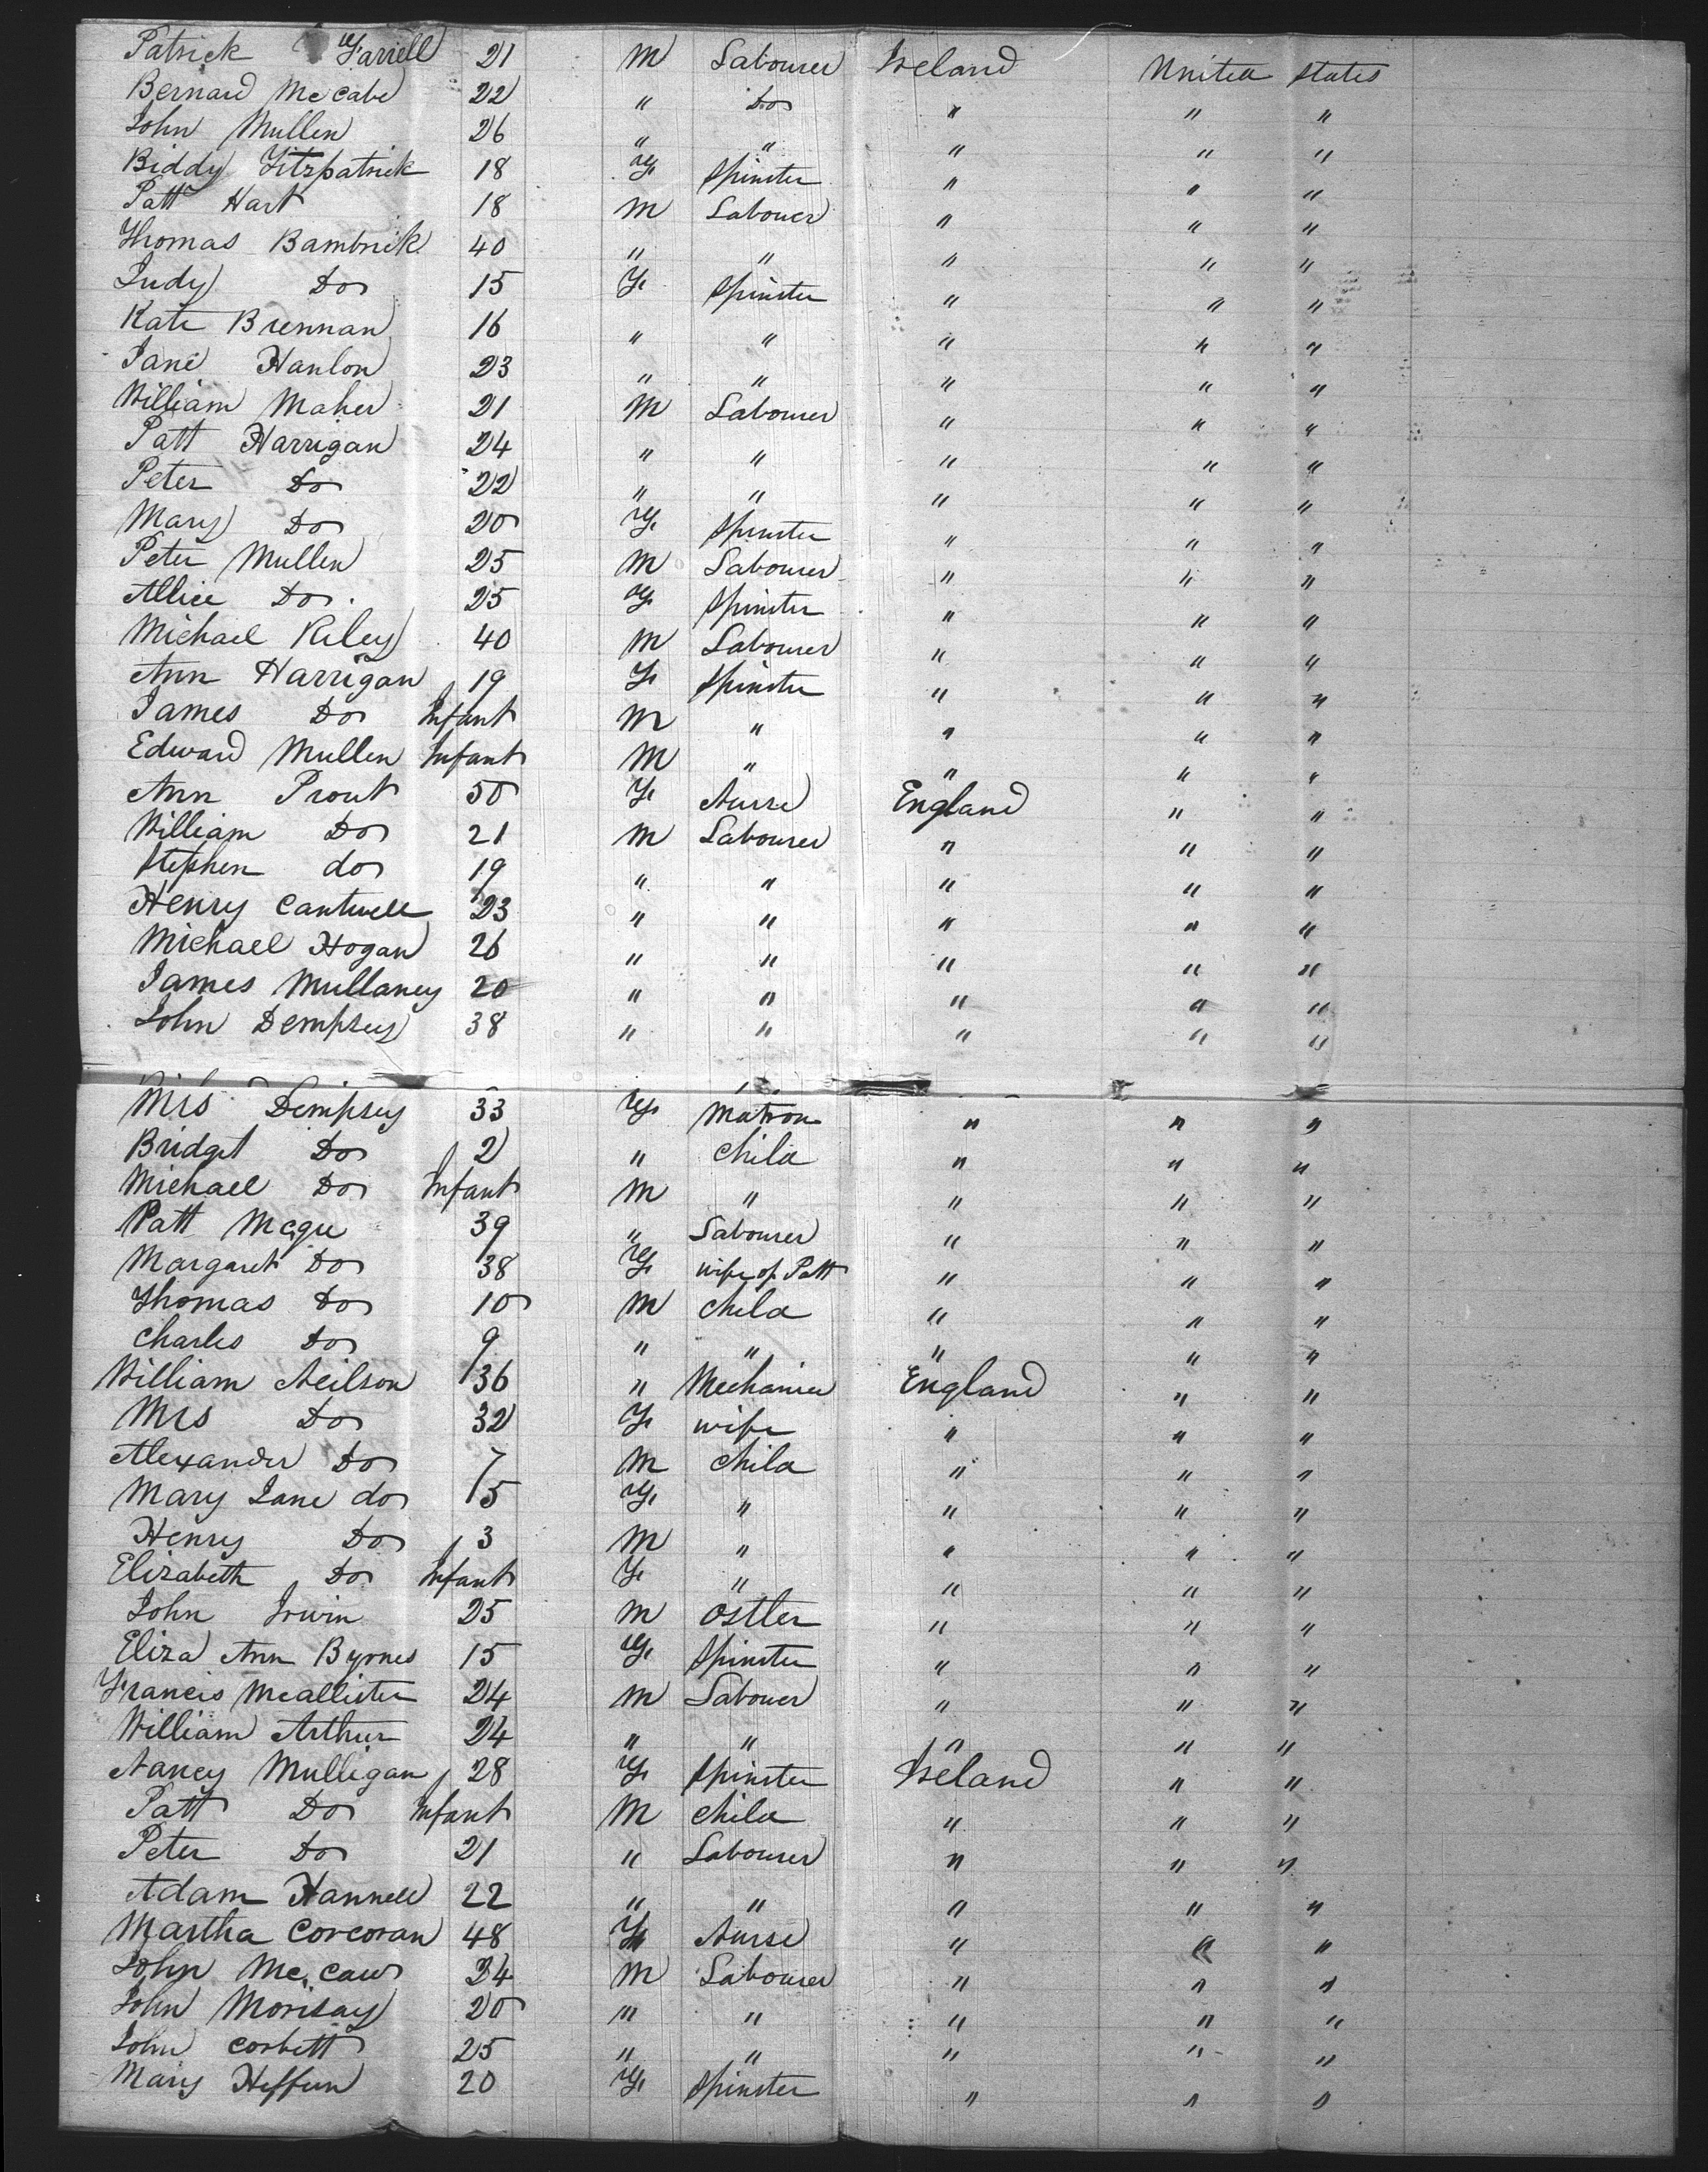 Patrick Farrell 21 M Labourer Ireland United States
Bernard McCabe 22 " Do " " "
John Mullen 26 " " " " "
Biddy Fitzpatrick 18 F Spinster " " "
Patt Hart 18 M Labouer " " "
Thomas Bambrick 40 " " " " "
Judy Do 15 F Spinster " " "
Kate Brennan 16 " " " " "
Jane Hanlon 23 " " " " "
William Maher 21 M Labourer " " "
Patt Harrigan 24 " " " " "
Peter Do 22 " " " " "
Mary Do 20 F Spinster " " "
Peter Mullen 25 M Labourer " " "
Allice Do 25 F Spinster " " "
Michael Riley 40 M Labourer " " "
Ann Harrigan 19 F Spinster " " "
James Do Infant M " " " "
Edward Mullen Infant M " " " "
Ann Prout 50 F Nurse England " "
William Do 21 M Labourer " " "
Stephen do 19 " " " " "
Henry Cantwell 23 " " " " "
Michael Hogan 26 " " " " "
James Mullaney 20 " " " " "
John Dempsey 38 " " " " "
Mrs Dempsey 33 F Matron " " "
Bridget Do 2 " Child " " "
Michael Do Infant M " " " "
Patt Mcgee 39 " Labourer " " "
Margaret Do 38 F wife of Patt " " "
Thomas Do 10 M Child " " "
Charles Do 9 " " " " "
William Neilson 36 " Mechanic England " "
Mrs Do 32 F wife " " "
Alexander Do 7 M Child " " "
Mary Jane do 5 F " " " "
Henry Do 3 M " " " "
Elizabeth Do Infant F " " " "
John Irwin 25 M Ostler " " "
Eliza Ann Byrnes 15 F Spinster " " "
Francis Mcallister 24 M Labouer " " "
William Arthur 24 " " " " "
Nancy Mulligan 28 F Spinster Ireland " "
Patt Do Infant M Child " " "
Peter Do 21 " Labourer " " "
Adam Hannell 22 " " " " "
Martha Corcoran 48 F Nurse " " "
John Mc,Caw 34 M Labourer " " "
John Morisay 20 " " " " "
John Corbett 25 " " " " "
Mary Heffern 20 F Spinster " " "